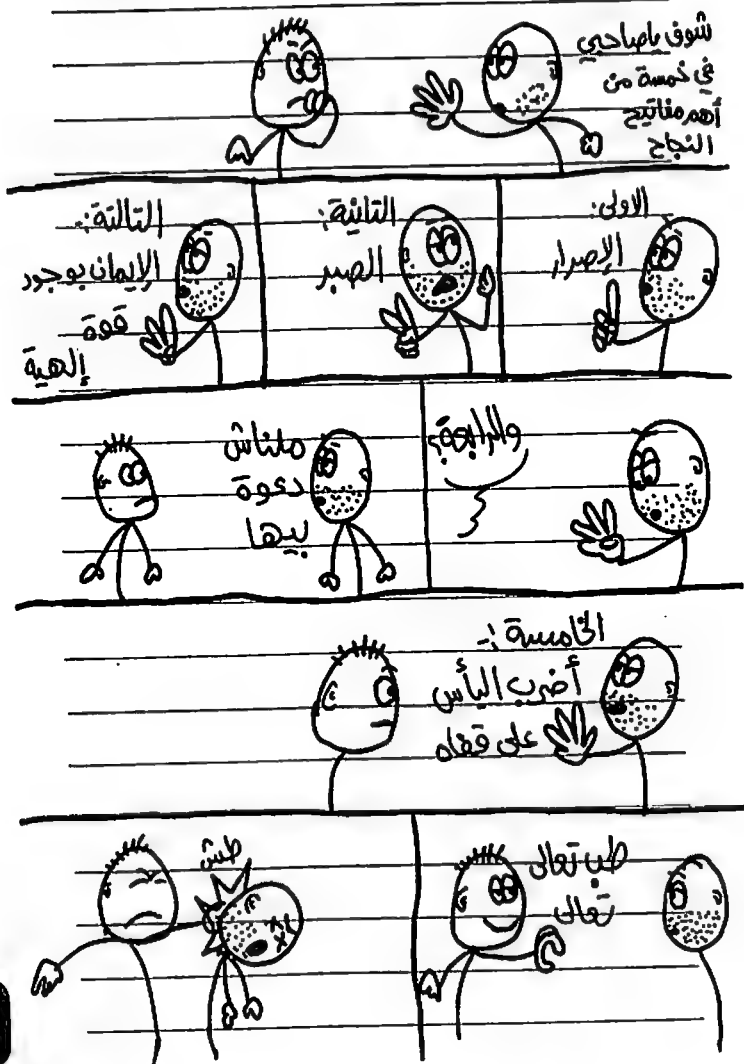 شوف ياصاحبي
في خمسة من
أهم مفاتيح
النجاح
الاولى:
الإصرار
التانية:
الصبر
التالتة:-
الإيمان بوجود
قوة
إلهية
والرابعة؟
ملناش
دعوة
بيها
الخامسة :-
أضرب اليأس
على قفاه
طب تعالى
تعالى
طش